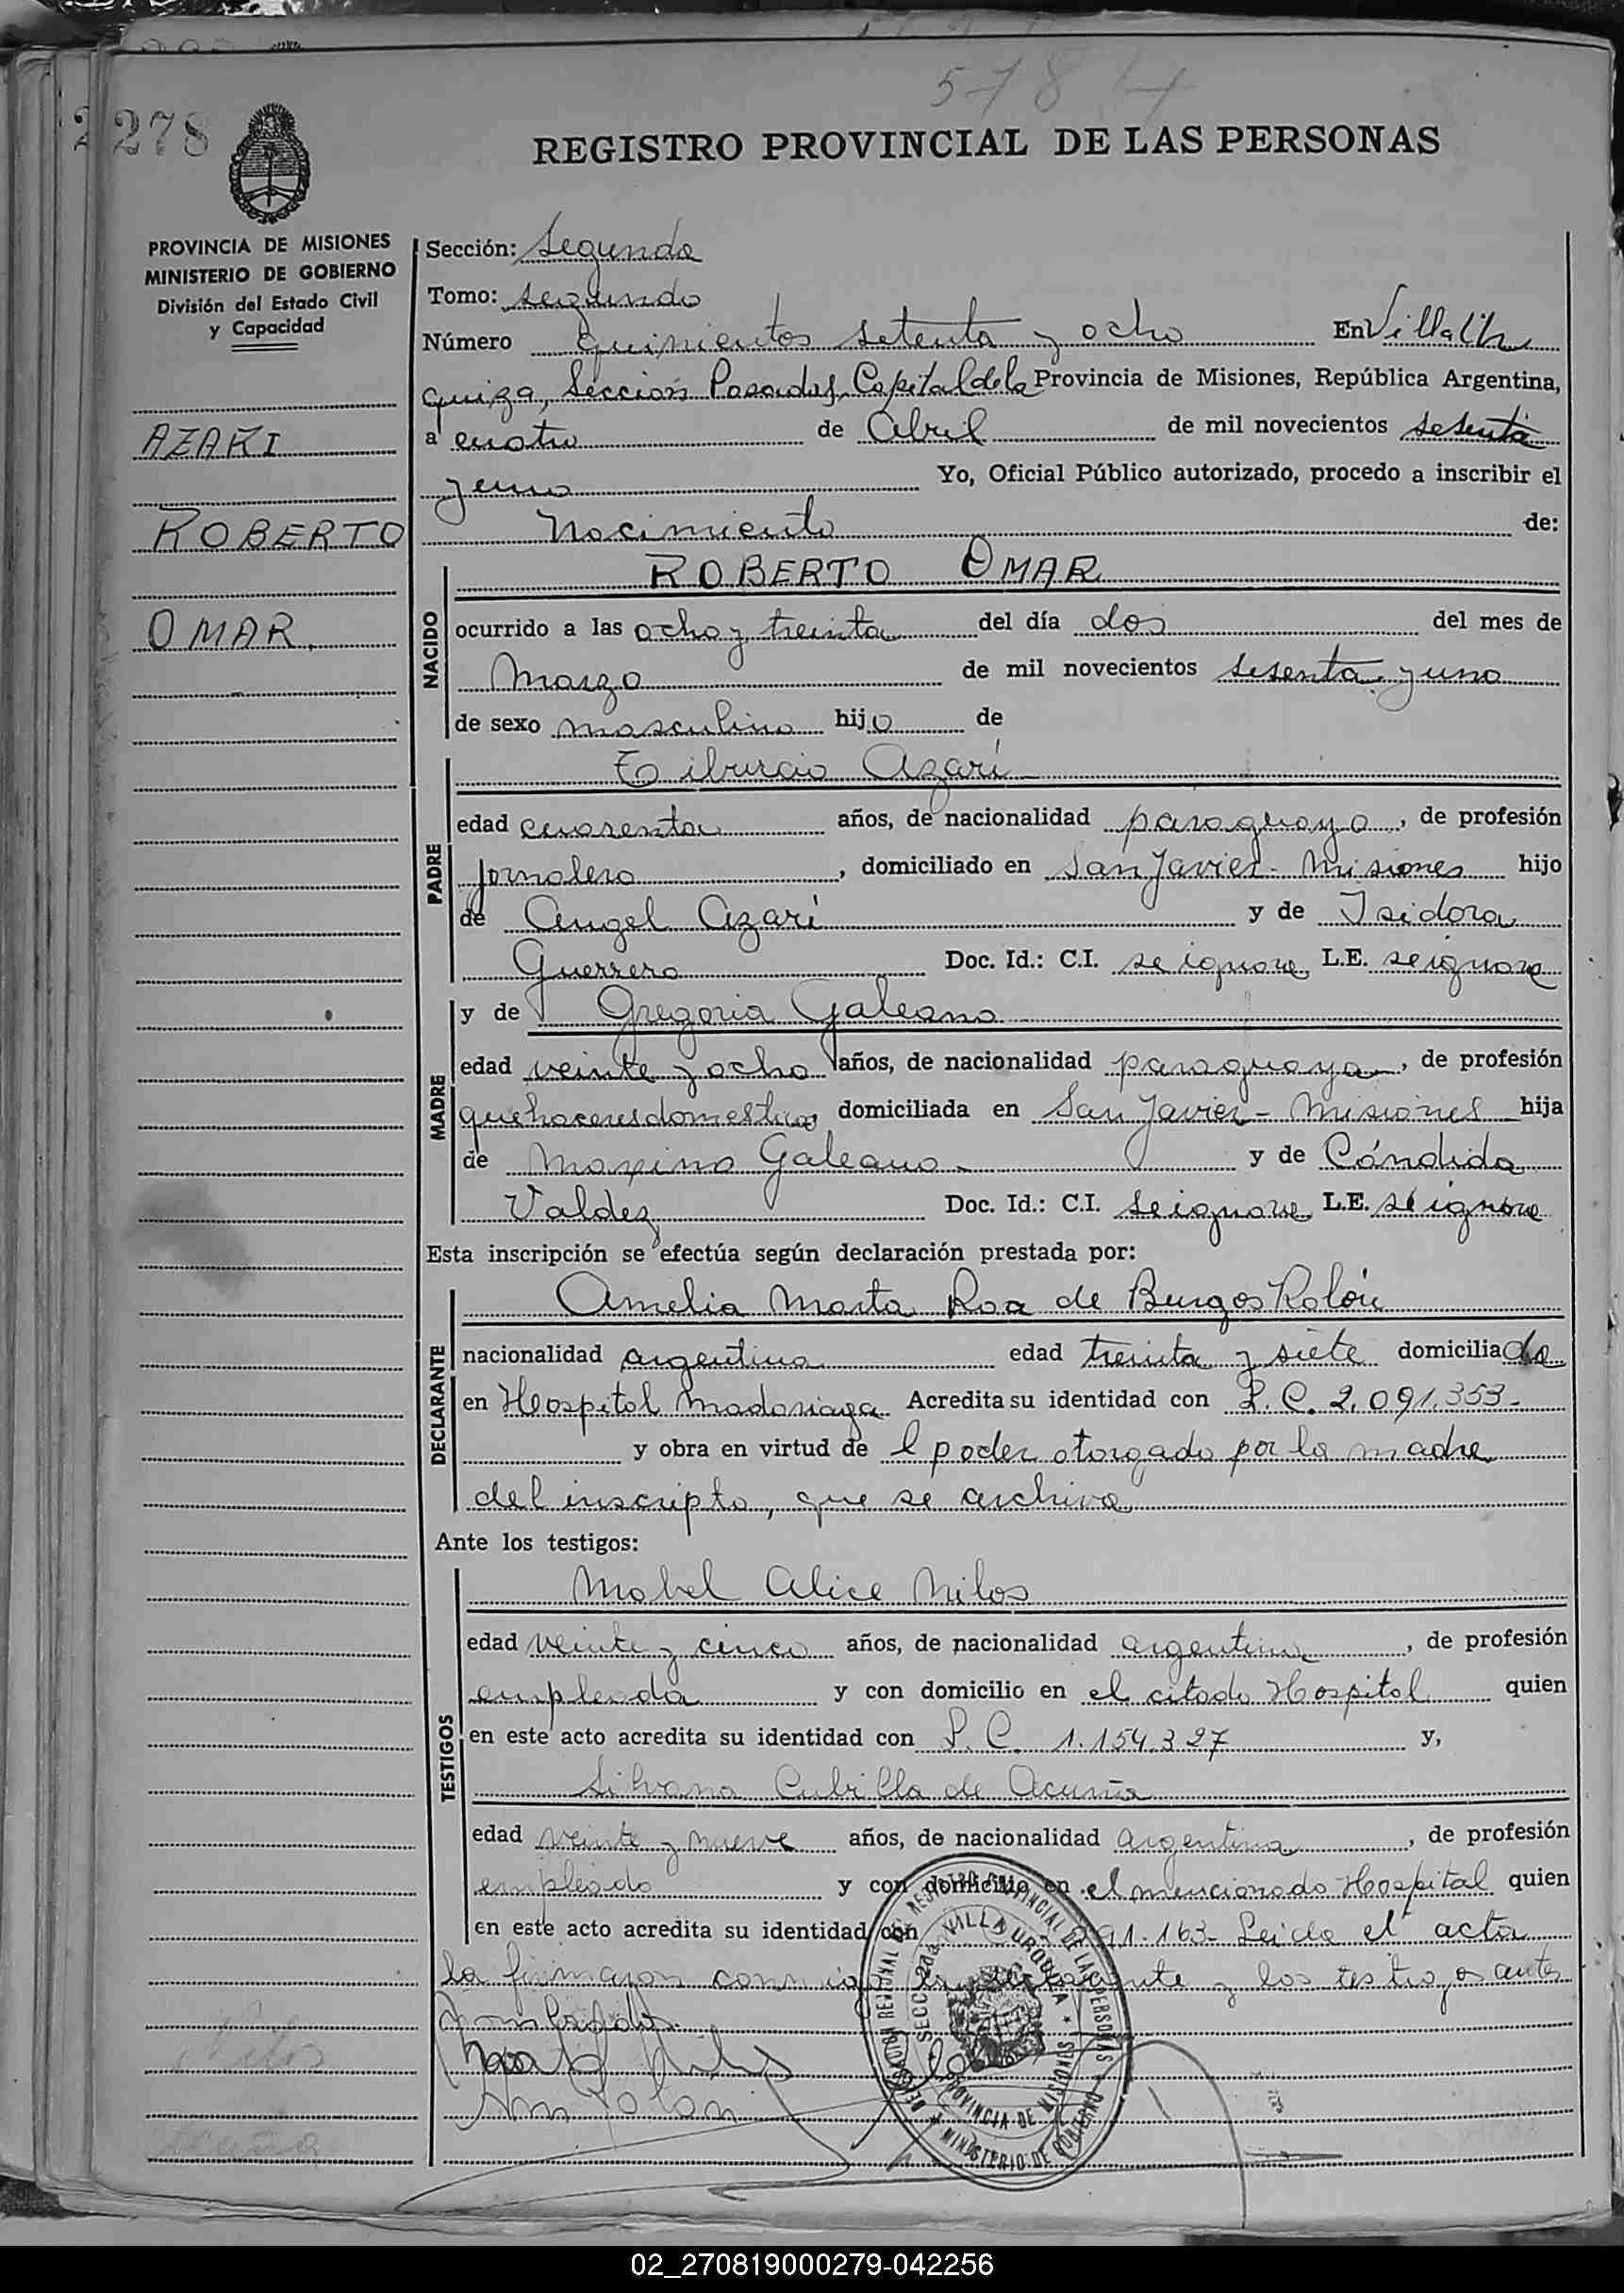 578
278
REGISTRO PROVINCIAL DE LAS PERSONAS
PROVINCIA DE MISIONES
MINISTERIO DE GOBIERNO
División del Estado Civil
y Capacidad
AZARI
ROBERTO
OMAR.
Sección: Segunda
Tomo: segundo
Número quinientos setenta y ocho En Villa Ur
quiza, Sección Posadas, Capital de la Provincia de Misiones, República Argentina,
a cuatro de Abril de mil novecientos sesenta
y uno Yo, Oficial Público autorizado, procedo a inscribir el
Nacimiento de:
NACIDO
ROBERTO OMAR
ocurrido a las ocho y treinta del día dos del mes de
Marzo de mil novecientos sesenta y uno
de sexo masculino hijo de
PADRE
Tiburcio Azari
edad cuarenta años, de nacionalidad paraguaya, de profesión
Jornalero, domiciliado en San Javier - Misiones hijo
de Angel Azari y de Isidora
Guerrero Doc. Id.: C.I. se ignora L.E. se ignora
MADRE
y de Gregoria Galeano
edad veinte y ocho años, de nacionalidad paraguaya, de profesión
quehaceres domesticos domiciliada en San Javier - Misiones hija
de Maximo Galeano - y de Cándida
Valdez Doc. Id.: C.I. se ignora L.E. se ignora
Esta inscripción se efectúa según declaración prestada por:
DECLARANTE
Amelia Marta Roa de Burgos Rolón
nacionalidad argentina edad treinta y siete domiciliada
en Hospital Madariaga Acredita su identidad con L.C. 2.091.353-
y obra en virtud de l poder otorgado por la madre
del inscripto, que se archiva
Ante los testigos:
TESTIGOS
Mabel Alice Milos
edad veinte y cinco años, de nacionalidad argentina, de profesión
empleada y con domicilio en el citado Hospital quien
en este acto acredita su identidad con L.C. 1.154.327 y,
Silvana Cubilla de Acuña
edad veinte y nueve años, de nacionalidad argentina, de profesión
empleada y con domicilio en el mencionado Hospital quien
en este acto acredita su identidad con 91.163- Leida el acta
la firman conmigo la declarante y los testigos antes
DELEGACION REGIONAL DEL REGISTRO PROVINCIAL DE LAS PERSONAS
SECC. 2da. VILLA URQUIZA
PROVINCIA DE MISIONES
MINISTERIO DE GOBIERNO
02_270819000279-042256